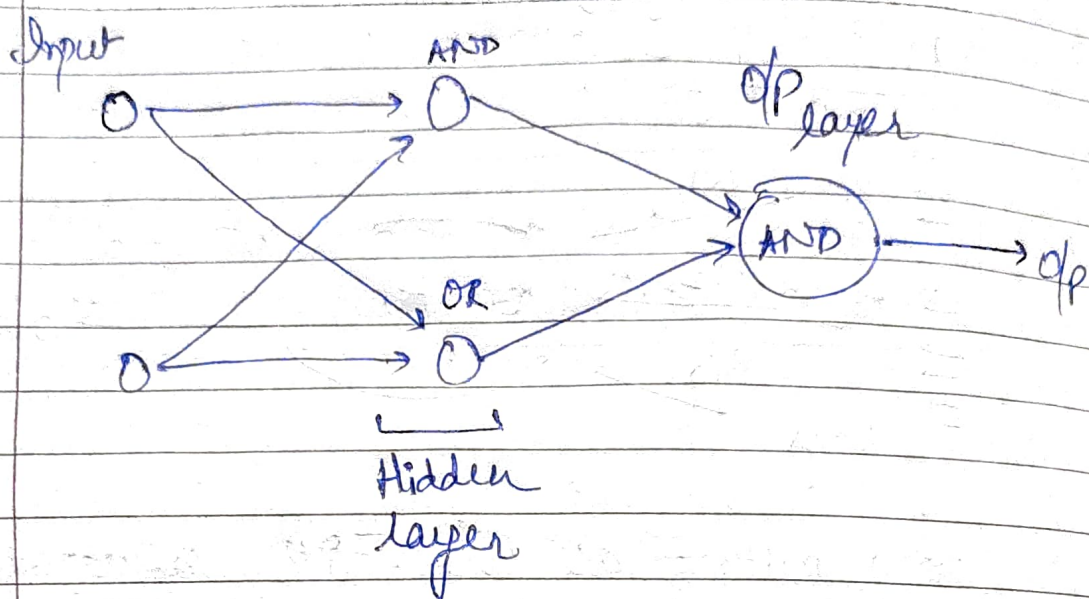 Input
AND
O/P
layer
AND
O/P
OR
Hidden
layer